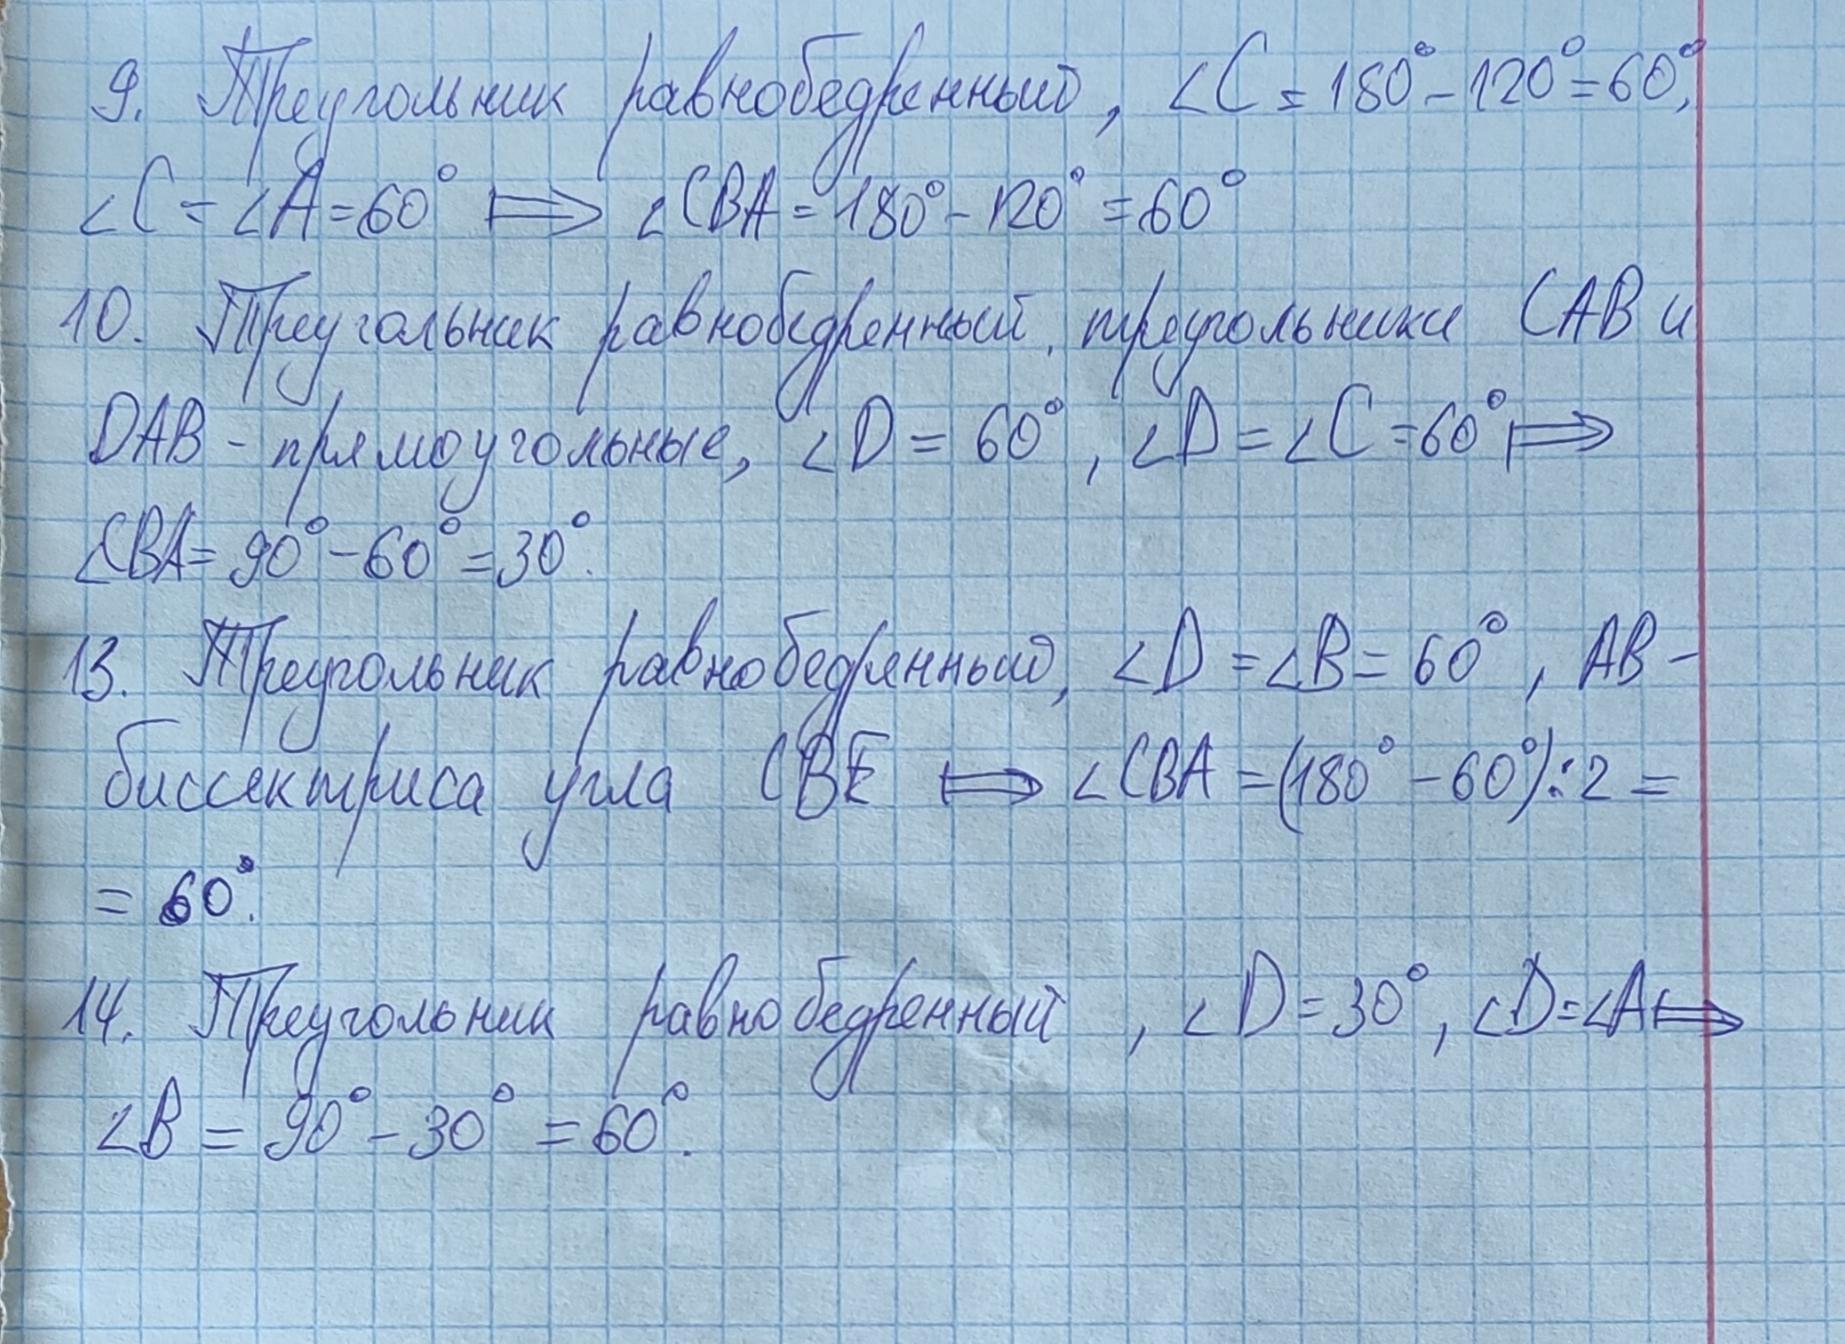 9. Треугольник равнобедренный, ∠C = 180° - 120° = 60°,
∠C = ∠A = 60° ⟹ ∠CBA = 180° - 120° = 60°
10. Треугольник равнобедренный, треугольники CAB и
DAB - прямоугольные, ∠D = 60°, ∠D = ∠C = 60° ⟹
∠CBA = 90° - 60° = 30°.
13. Треугольник равнобедренный, ∠D = ∠B = 60°, AB -
биссектриса угла CBE ⟹ ∠CBA = (180° - 60°) : 2 =
= 60°.
14. Треугольник равнобедренный, ∠D = 30°, ∠D = ∠A ⟹
∠B = 90° - 30° = 60°.